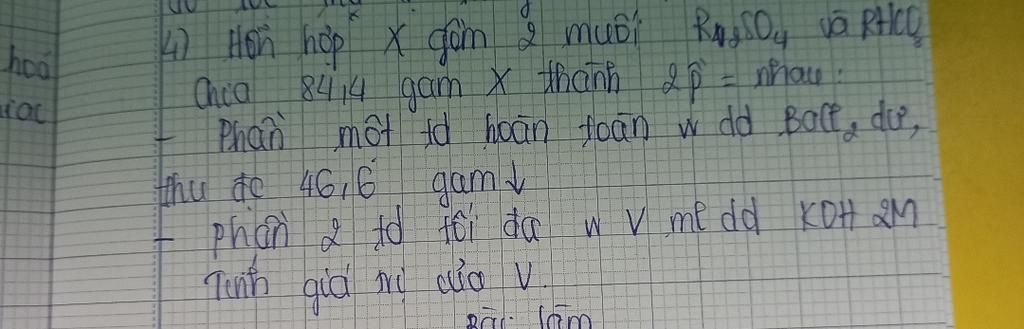 hoá
4) Hỗn hợp X gồm 2 muối R₂SO₄ và RHCO₃
Chia 84,4 gam X thành 2p = nhau:
- Phần một td hoàn toàn w dd BaCl₂ dư,
thu đc 46,6 gam↓
- phần 2 td tối đa w V ml dd KOH 2M
Tính giá trị của V.
Bài làm